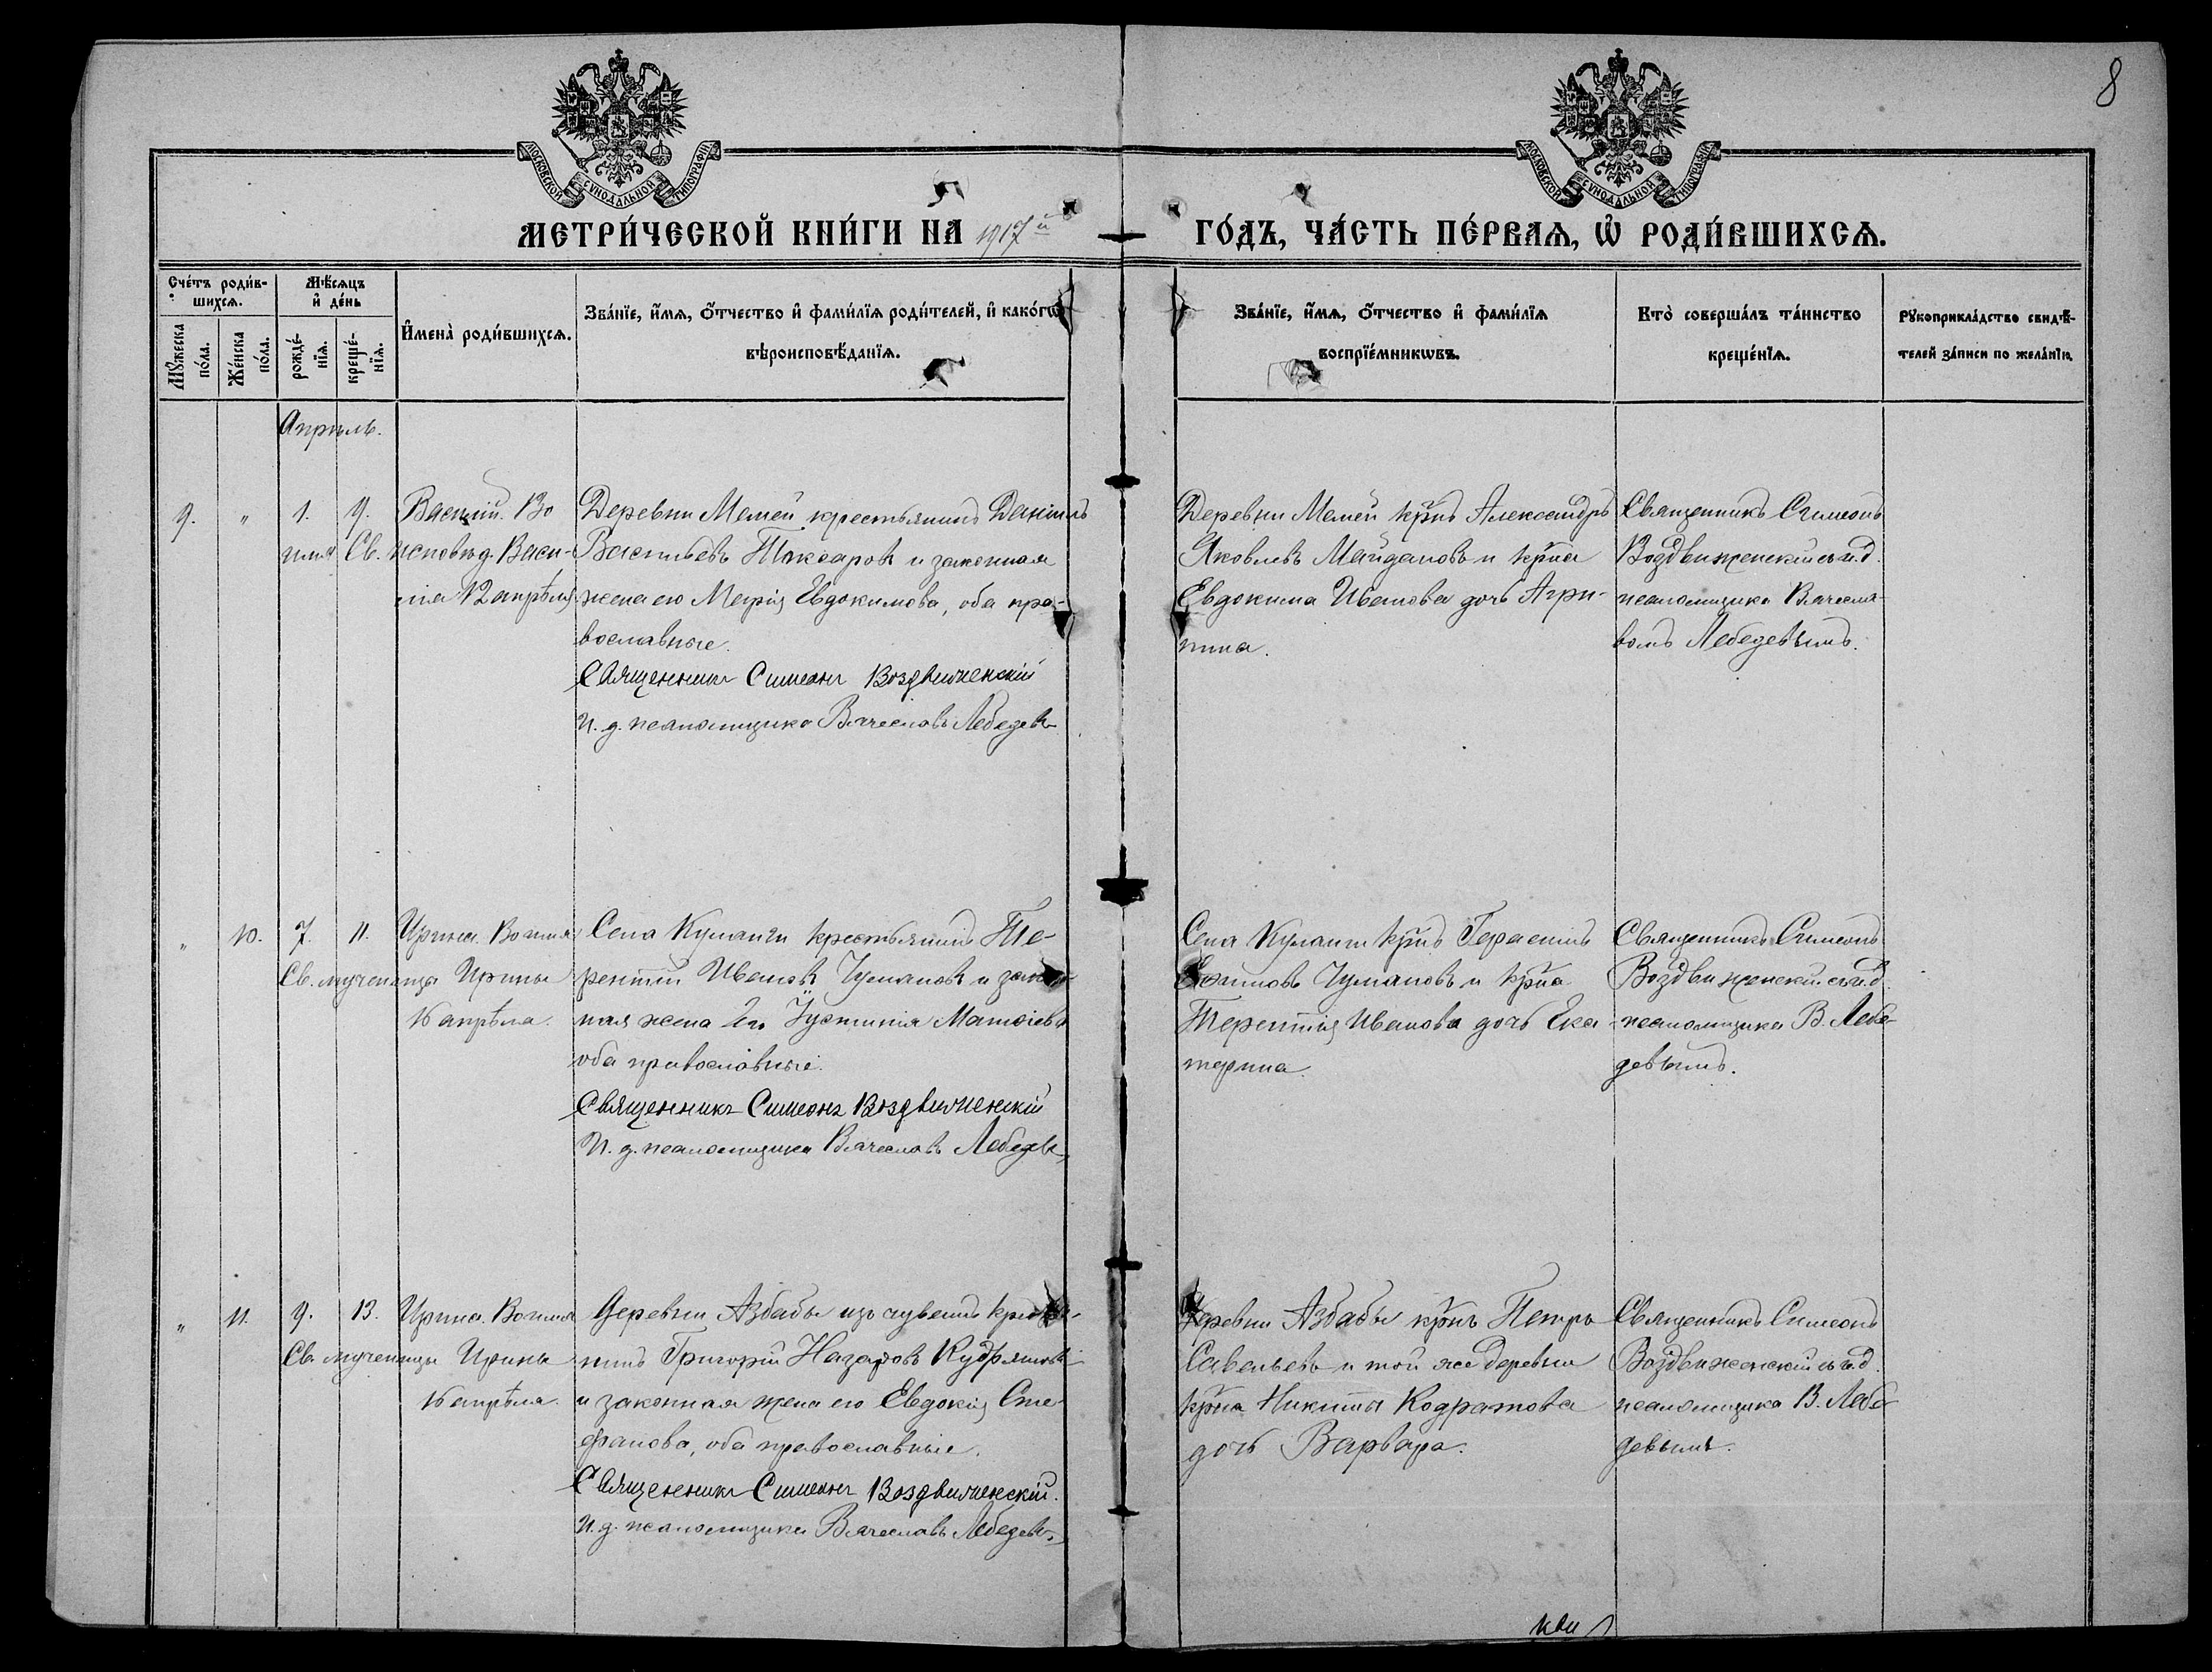 8
МОСКОВСКОЙ СУНОДАЛЬНОЙ ТИПОГРАФІИ
МОСКОВСКОЙ СУНОДАЛЬНОЙ ТИПОГРАФІИ
МЕТРИ́ЧЕСКОЙ КНИ́ГИ НА 1917й
ГО́ДЪ, ЧА́СТЬ ПЕ́РВАѦ, Ѡ҆ РОДИ́ВШИХСѦ.
Сче́тъ роди́в-
шихсѧ.
Мꙋ́жеска
по́ла.
Же́нска
по́ла.
Мѣ́сѧцъ
и҆ де́нь
рожде́-
нїѧ.
креще́-
нїѧ.
И҆мена̀ роди́вшихсѧ.
Зва́нїе, и҆́мѧ, ѻ҆́тчество и҆ фами́лїѧ роди́телей, и҆ како́гѡ
вѣроисповѣ́данїѧ.
Зва́нїе, и҆́мѧ, ѻ҆́тчество и҆ фами́лїѧ
воспрїе́мникѡвъ.
Кто̀ соверша́лъ та́инство
креще́нїѧ.
Рꙋкоприкла́дство свидѣ́-
телей за́писи по жела́нїю.
Апрѣль.
9.
"
1.
9.
Василій. Во
имя Св. исповѣд. Васи-
лія 12 апрѣля.
Деревни Мемей крестьянинъ Даніилъ
Васильевъ Токсаровъ и законная
жена его Марія Евдокимова, оба пра-
вославные.
Священникъ Симеонъ Воздвиженскій
И. д. псаломщика Вячеславъ Лебедевъ
Деревни Мемей кр̃нъ Александръ
Яковлевъ Майдановъ и кр̃на
Евдокима Иванова дочь Агри-
пина.
Священникъ Симеонъ
Воздвиженскій съ и.д.
псаломщика Вячесла-
вомъ Лебедевымъ.
"
10.
7.
11.
Ирина. Во имя
Св. мученицы Ирины
16 апрѣля.
Села Куланги крестьянинъ Те-
рентій Ивановъ Чумановъ и закон-
ная жена его Іустинія Матѳіева
оба православные.
Священникъ Симеонъ Воздвиженскій
И. д. псаломщика Вячеславъ Лебедевъ
Села Куланги кр̃нъ Герасимъ
Чумановъ и кр̃на
Терентія Иванова дочь Ека-
терина.
Священникъ Симеонъ
Воздвиженскій съ и.д.
псаломщика В. Лебе-
девымъ.
"
11.
9.
13.
Ирина. Во имя
Св. мученицы Ирины
16 апрѣля.
Деревни Азбабы изъ чувашъ крестья-
нинъ Григорій Назаровъ Кудряшовъ
и законная жена его Евдокія Сте-
фанова, оба православные.
Священникъ Симеонъ Воздвиженскій.
И. д. псаломщика Вячеславъ Лебедевъ
Деревни Азбабы кр̃нъ Петръ
Савельевъ и той же деревни
кр̃на Никиты Кодратова
дочь Варвара.
Священникъ Симеонъ
Воздвиженскій съ и.д.
псаломщика В. Лебе-
девымъ.